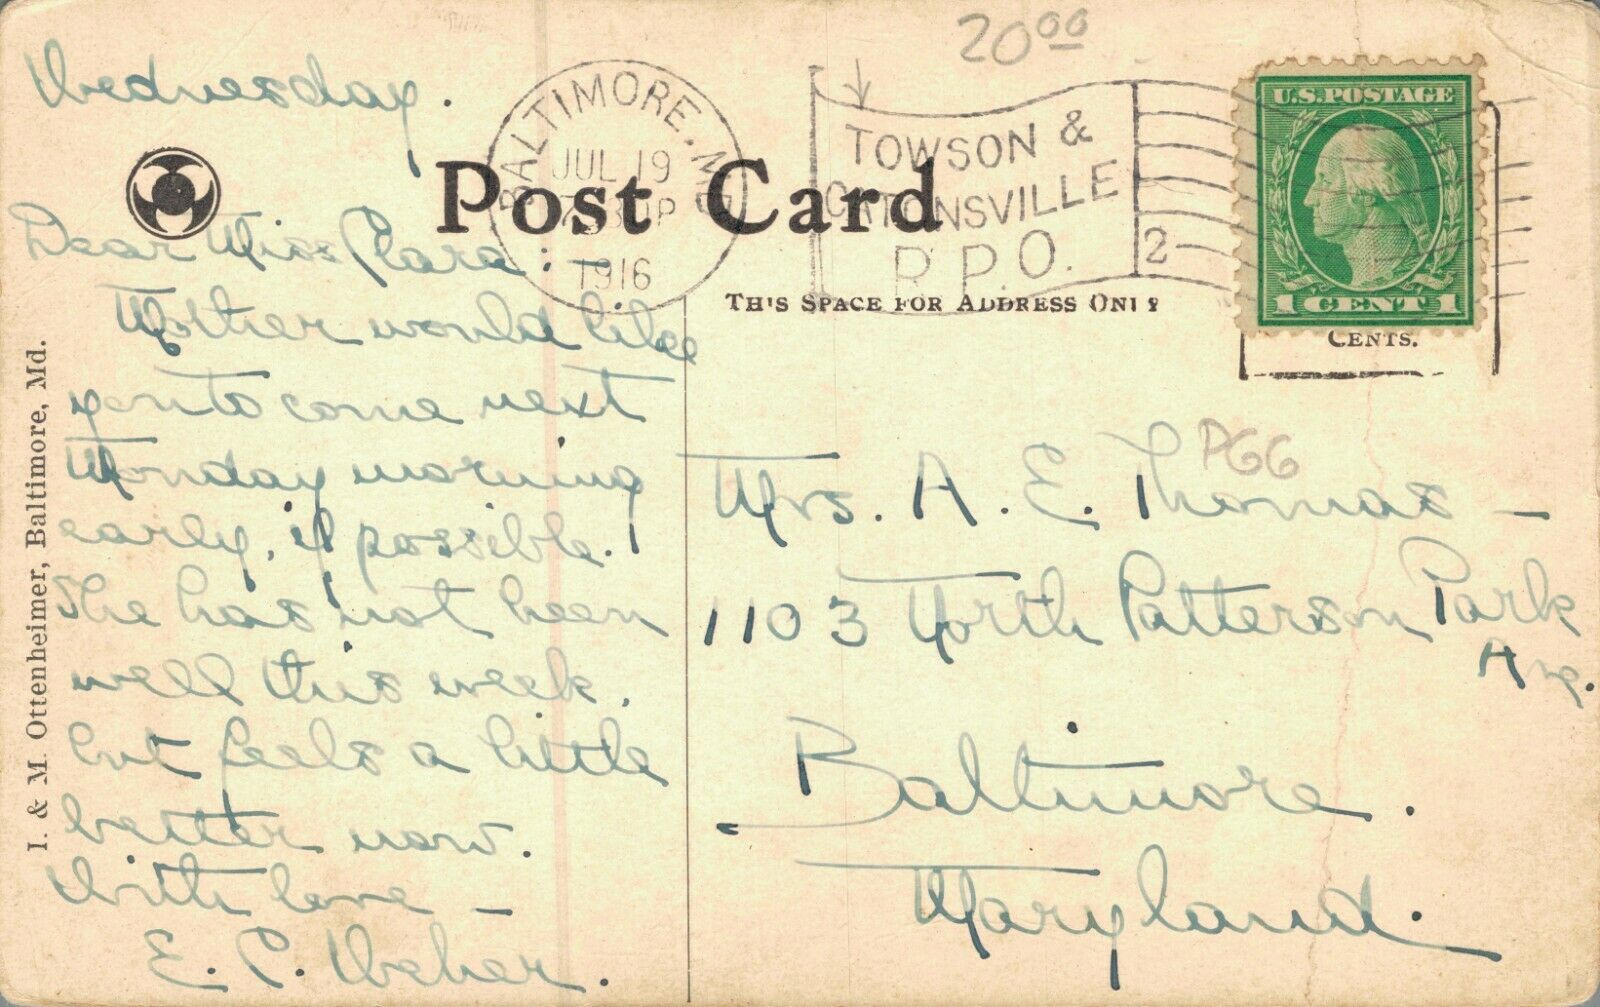 20 00
Wednesday.
BALTIMORE, MD
JUL 19
1916
TOWSON &
CATONSVILLE
R.P.O.
2
U.S. POSTAGE
1 CENT 1
Post Card
THIS SPACE FOR ADDRESS ONLY
CENTS.
Dear Miss Clara: —
Mother would like
you to come next
Monday morning
early, if possible.
She has not been
well this week,
but feels a little
better now.
With love —
E. C. Weber.
PGG
Mrs. A. E. Thomas —
1103 North Patterson Park
Ave.
Baltimore.
Maryland.
I. & M. Ottenheimer, Baltimore, Md.